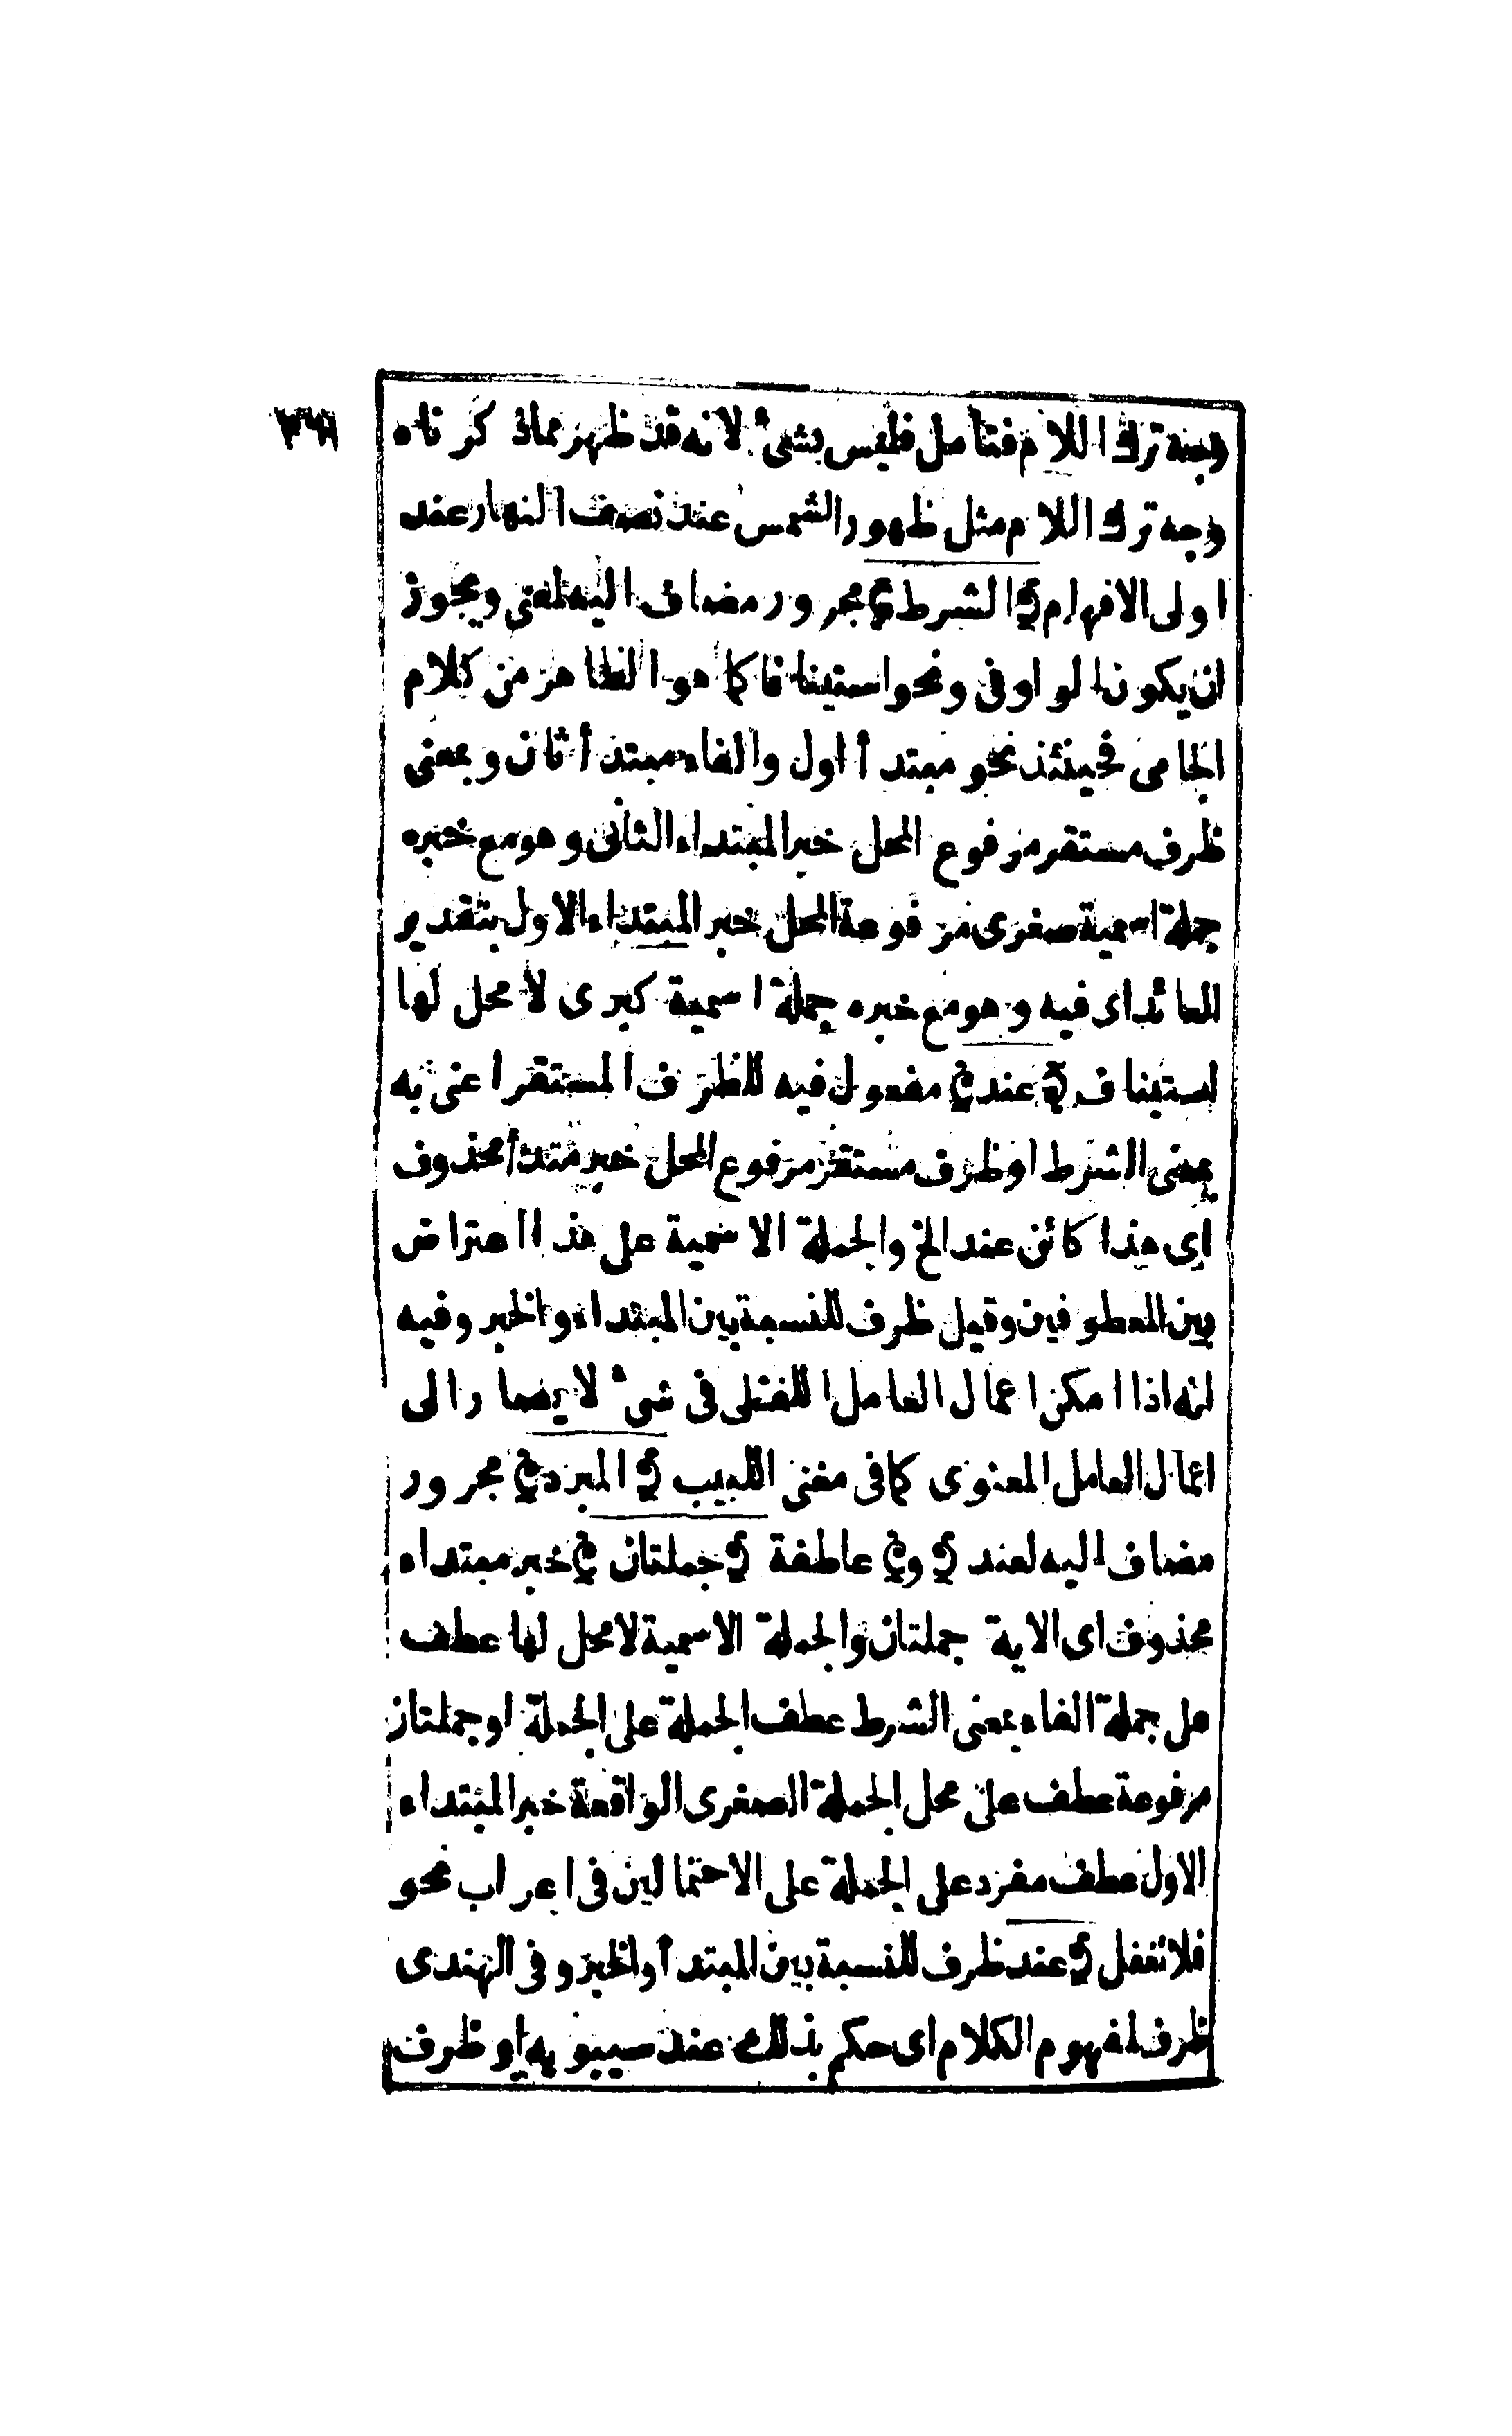 وجه ترك اللام فتأمل فليس بشئ لانه قد ظهر مماذ كرناه
وجه ترك اللام مثل ظهور الشمس عند نصف النهار عند
اولى الافهام ﴿ الشرط ﴾ مجرور مضاف اليه لمعنى ويجوز
ان يكون الواو فى ونحو استينافا كما هو الظاهر من كلام
الجامى فحينئذ نحو مبتدأ اول والفاء مبتدأ ثان وبمعنى
ظرف مستقر مرفوع المحل خبر المبتداء الثانى وهو مع خبره
جملة اسمية صغرى مرفوعة المحل خبر المبتداء الاول بتقدير
العائد اى فيه وهو مع خبره جملة اسمية كبرى لا محل لها
استيناف ﴿ عند ﴾ مفعول فيه للظرف المستقر اعنى به
بمعنى الشرط او ظرف مستقر مرفوع المحل خبر مبتدأ محذوف
اى هذا كائن عند الخ والجملة الاسمية على هذا اعتراض
بين المعطوفين وقيل ظرف للنسبة بين المبتداء والخبر وفيه
انه اذا امكن اعمال العامل اللفظى فى شئ لا يصار الى
اعمال العامل المعنوى كما فى مغنى اللبيب ﴿ المبرد ﴾ مجرور
مضاف اليه لعند ﴿ و ﴾ عاطفة ﴿ جملتان ﴾ خبر مبتداء
محذوف اى الاية جملتان والجملة الاسمية لا محل لها عطف
على جملة الفاء بمعنى الشرط عطف الجملة على الجملة او جملتان
مرفوعة عطف على محل الجملة الصغرى الواقعة خبر المبتداء
الاول عطف مفرد على الجملة على الاحتمالين فى اعراب نحو
فلا تغفل ﴿ عند ظرف للنسبة بين المبتدأ والخبر وفى الهندى
ظرف لمفهوم الكلام اى حكم بذلك عند سيبويه او ظرف